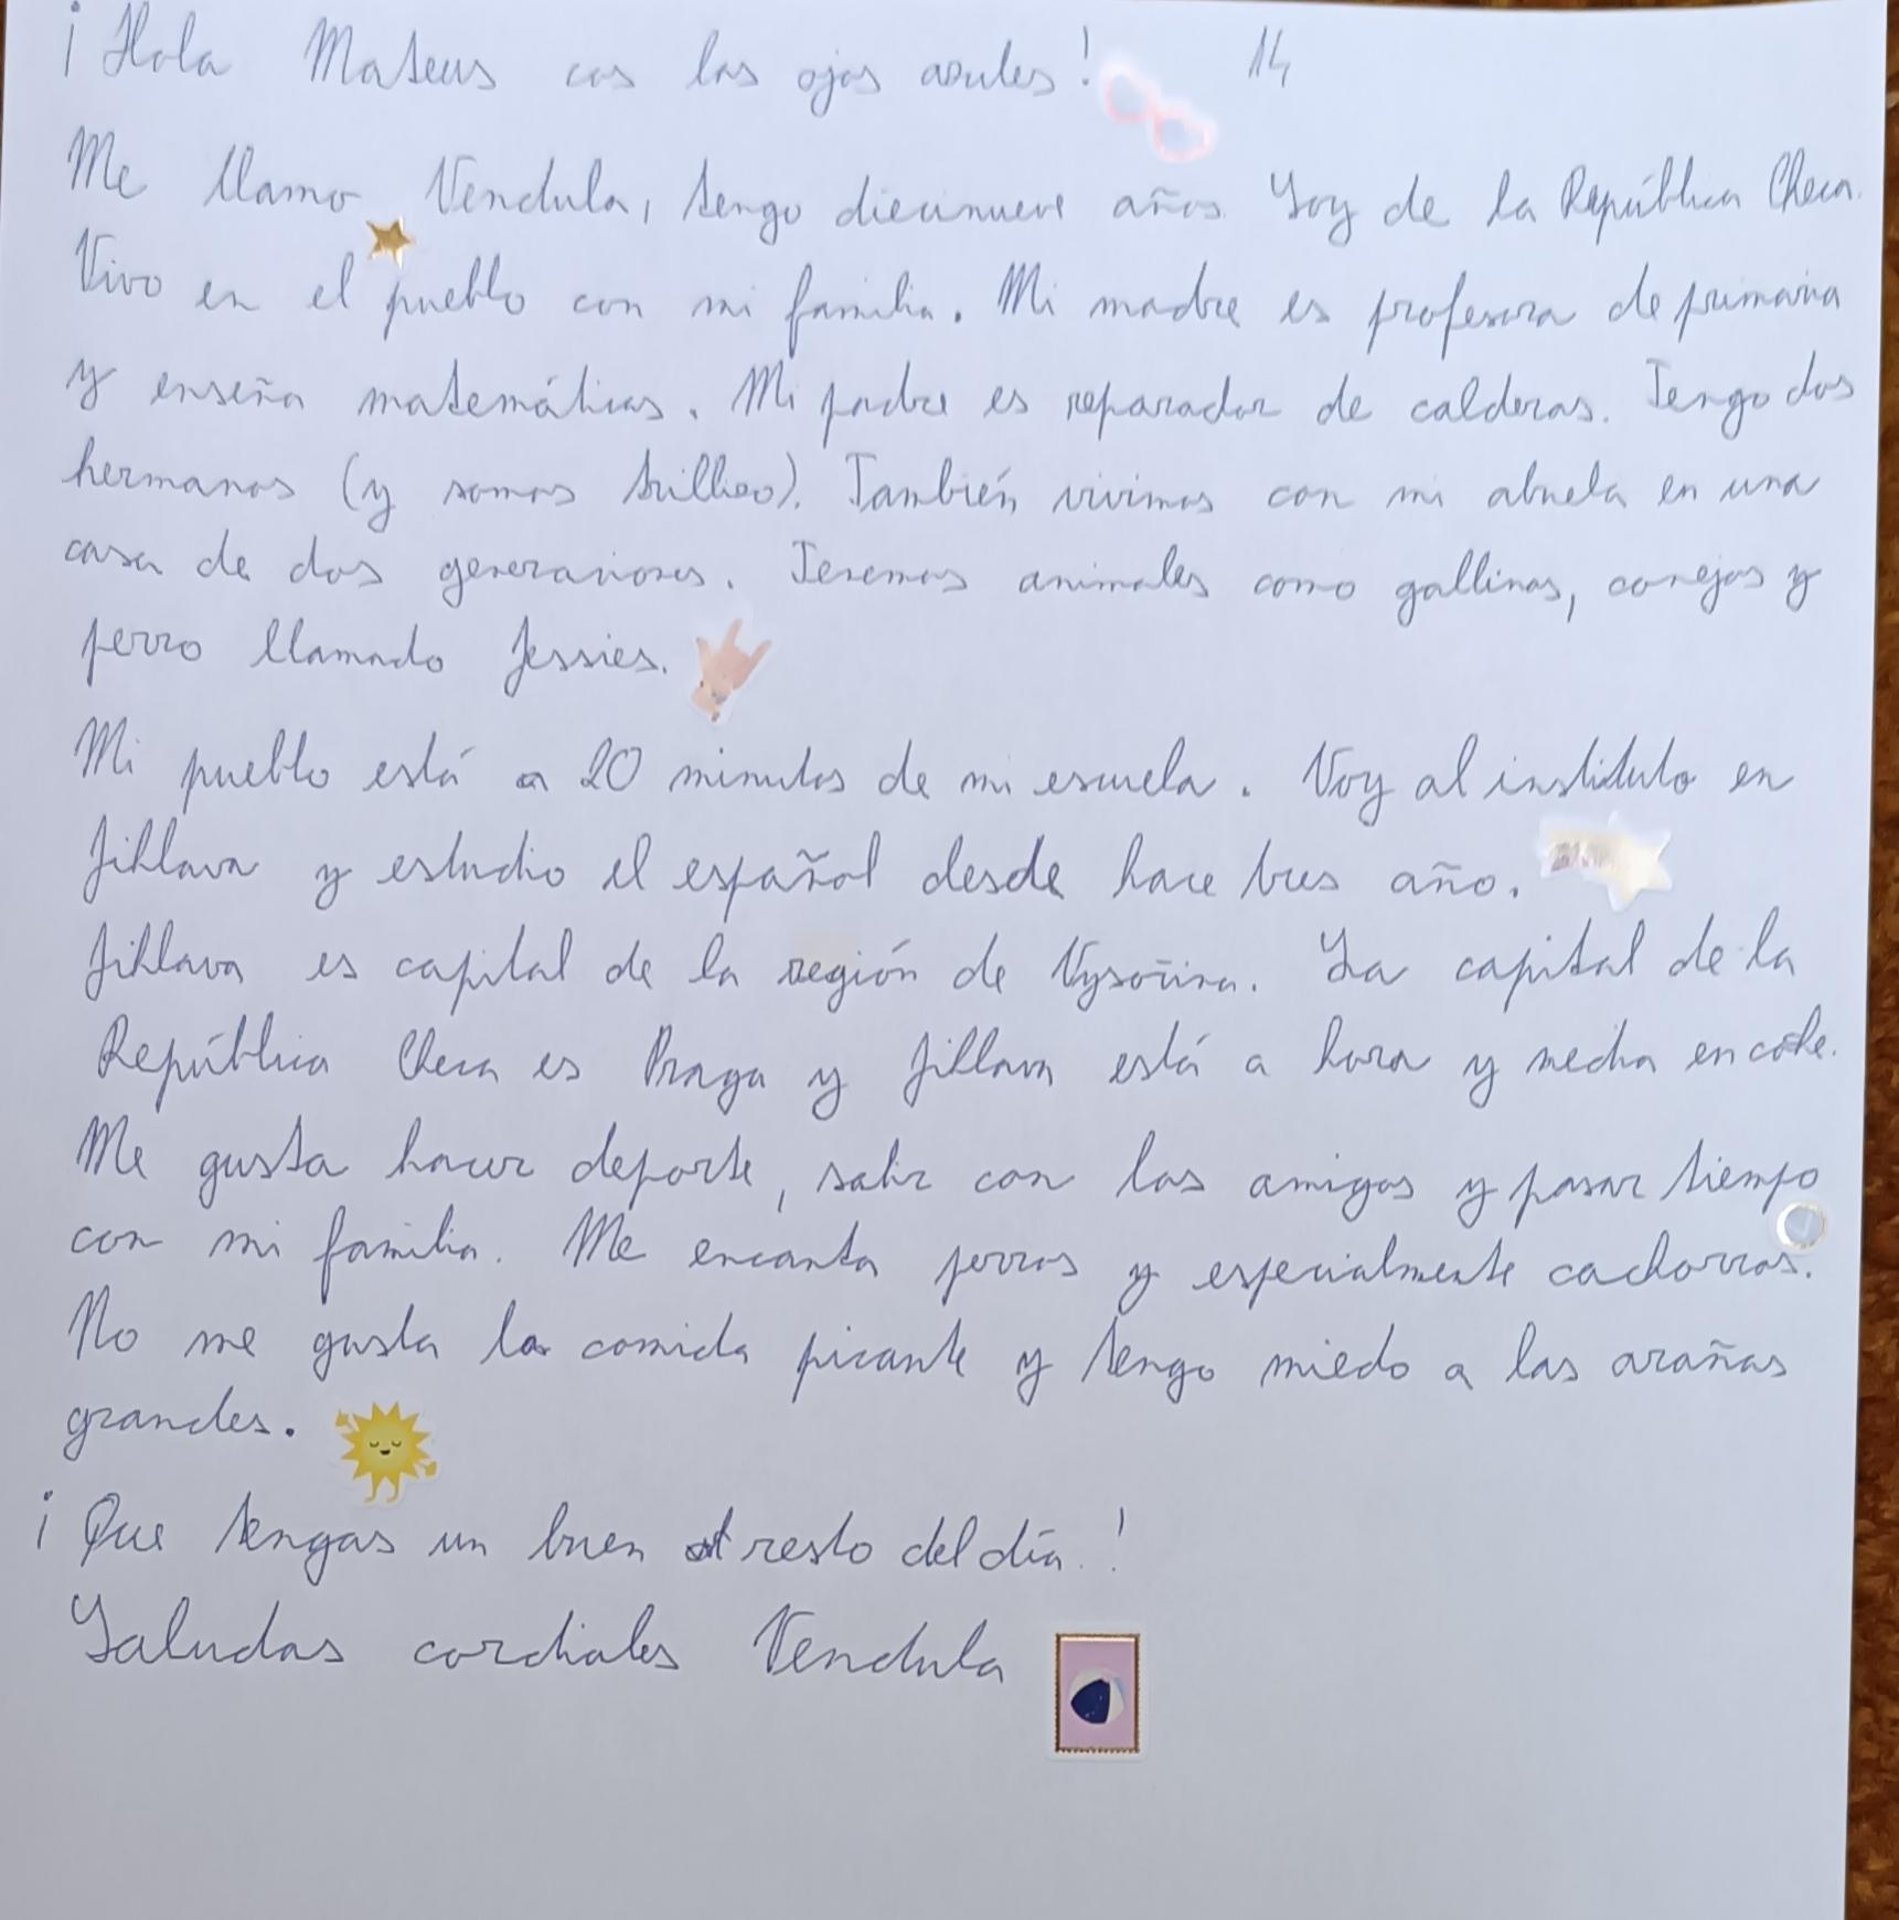 ¡Hola Mateus cos los ojos azules! 14
Me llamo Vendula, tengo diecinueve años Soy de la República Checa.
Vivo en el pueblo con mi familia. Mi madre es profesora de primaria
y enseña matemáticas. Mi padre es reparador de calderas. Tengo dos
hermanos (y somos). También vivimos con mi abuela en una
casa de dos generaciones. Tenemos animales como gallinas, conejos y
perro llamado Jessies.
Mi pueblo está a 20 minutos de mi escuela. Voy al instituto en
Jihlava y estudio el español desde hace tres año.
Jihlava es capital de la región de Vysočina. La capital de la
República Checa es Praga y Jihlava está a hora y media en coche.
Me gusta hacer deporte, salir con los amigos y pasar tiempo
con mi familia. Me encanta perros y especialmente cachorros.
No me gusta la comida picante y tengo miedo a las arañas
grandes.
¡Que tengas un buen resto del día.!
Saludos cordiales Vendula